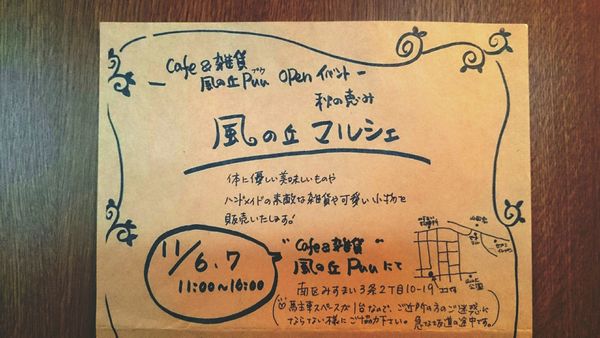 Cafe&雑貨
風の丘Puu Openイベント
プウ
秋の恵み
風の丘 マルシェ
体に優しい美味しいものや
ハンドメイドの素敵な雑貨や可愛い小物を
販売いたします。
11/6.7
11:00~16:00
"Cafe&雑貨"
風の丘 Puu にて
南区みすまい3条2丁目10-19
駐車スペースが1台なので、ご近所の方のご迷惑に
ならない様にご協力下さい。急な坂道の途中です。
公園